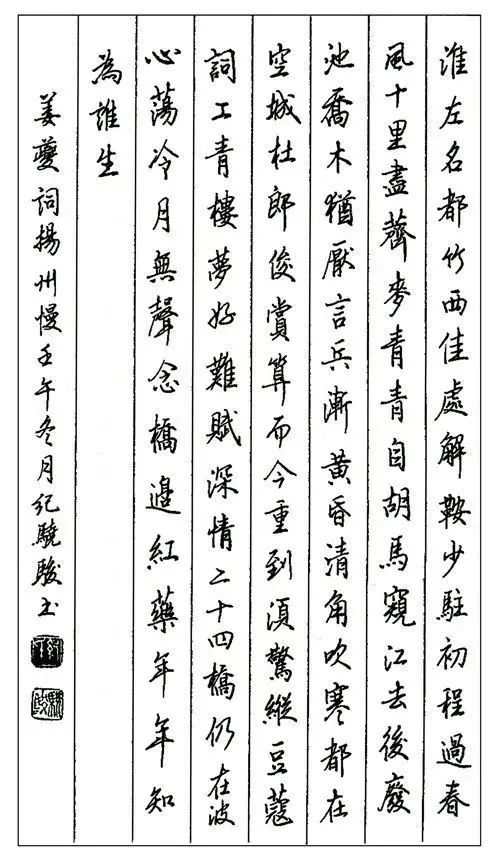 淮左名都竹西佳處解鞍少駐初程過春
風十里盡薺麥青青自胡馬窺江去後廢
池喬木猶厭言兵漸黃昏清角吹寒都在
空城杜郎俊賞算而今重到須驚縱豆蔻
詞工青樓夢好難賦深情二十四橋仍在波
心蕩冷月無聲念橋邊紅藥年年知
為誰生
姜夔詞揚州慢壬午冬月紀驍駿書